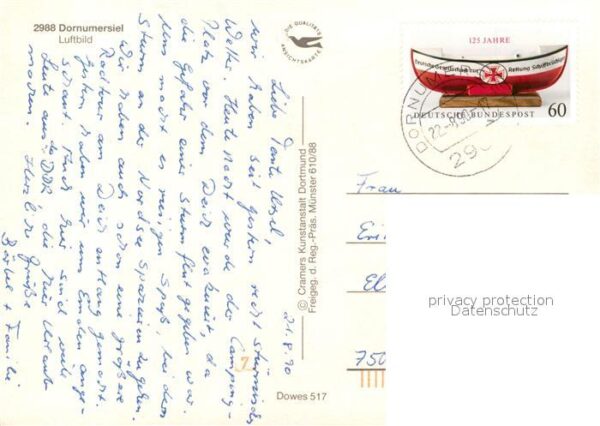 2988 Dornumersiel
Luftbild
DIE QUALITÄTS
ANSICHTSKARTE
21.8.90
Liebe Tante Ursel,
wir haben seit gestern recht stürmisches
Wetter. Heute Nacht wurde der Camping-
Platz vor dem Deich evakuiert, da
die Gefahr einer Sturmflut gegeben war.
Uns macht es riesigen Spaß, bei dem
Sturm an der Nordsee spazieren zu gehen.
Wir haben auch schon eine größere
Radtour am Deich entlang gemacht.
haben wir uns Emden ange-
schaut. Und hier sind viele
Leute aus der DDR, die hier Urlaub
machen. Herzliche Grüße
Bärbel + Familie
© Cramers Kunstanstalt Dortmund
Freigeg. d. Reg.-Präs. Münster 610/88
Dowes 517
125 JAHRE
Deutsche Gesellschaft zur Rettung Schiffbrüchiger
DEUTSCHE BUNDESPOST
60
DORNUM
22.-8.90
29
Frau
Eri
El
750
7
privacy protection
Datenschutz